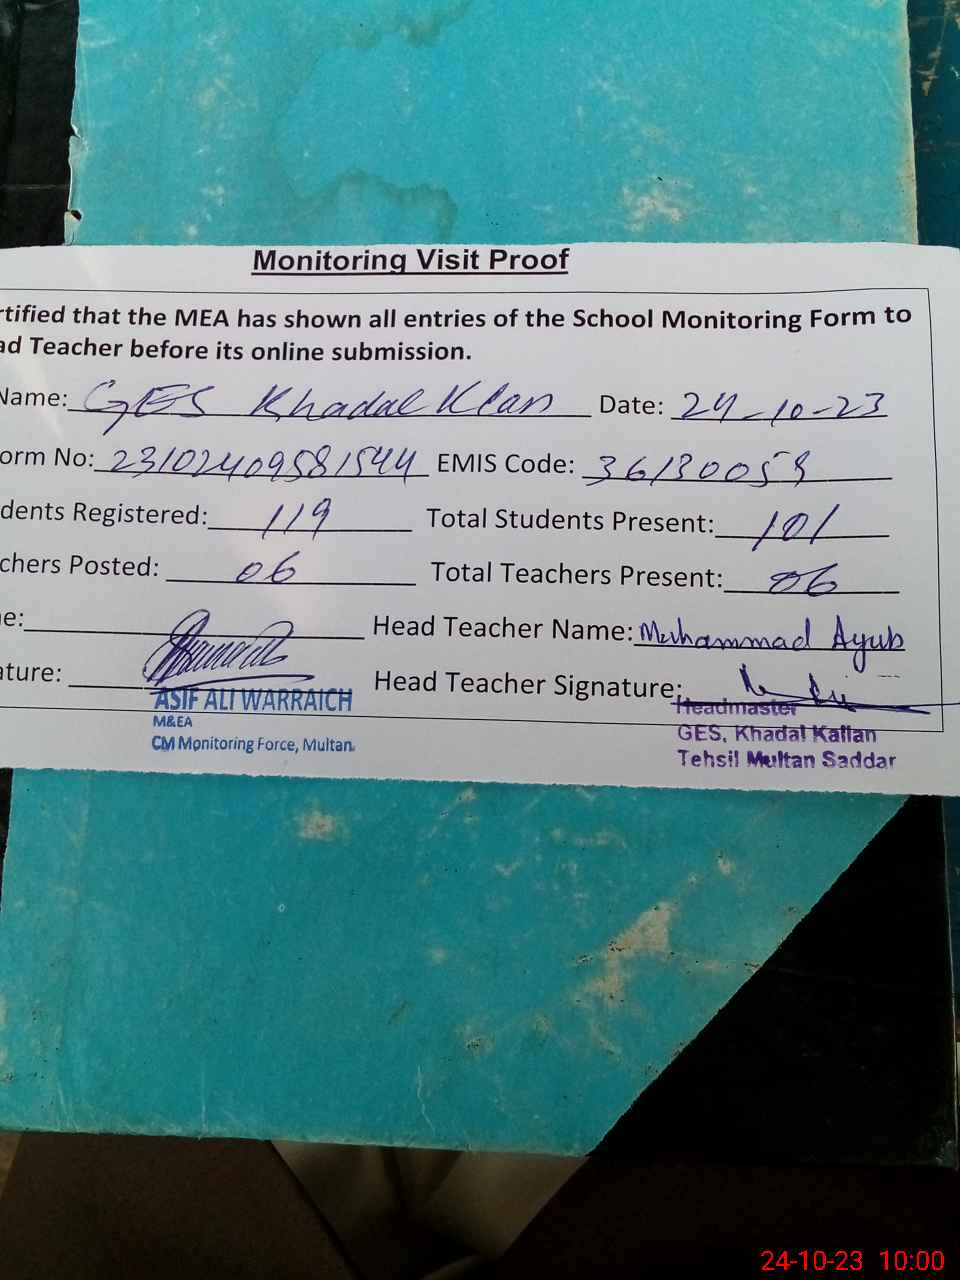 Monitoring Visit Proof
rtified that the MEA has shown all entries of the School Monitoring Form to
ad Teacher before its online submission.
Name: GES Khadal Klan Date: 24-10-23
orm No: 23102409581544 EMIS Code: 36130059
dents Registered: 119 Total Students Present: 101
chers Posted: 06 Total Teachers Present: 06
e: Head Teacher Name: Muhammad Ayub
ature: Head Teacher Signature:
ASIF ALI WARRAICH
M&EA
CM Monitoring Force, Multan.
Headmaster
GES, Khadal Kallan
Tehsil Multan Saddar
24-10-23 10:00